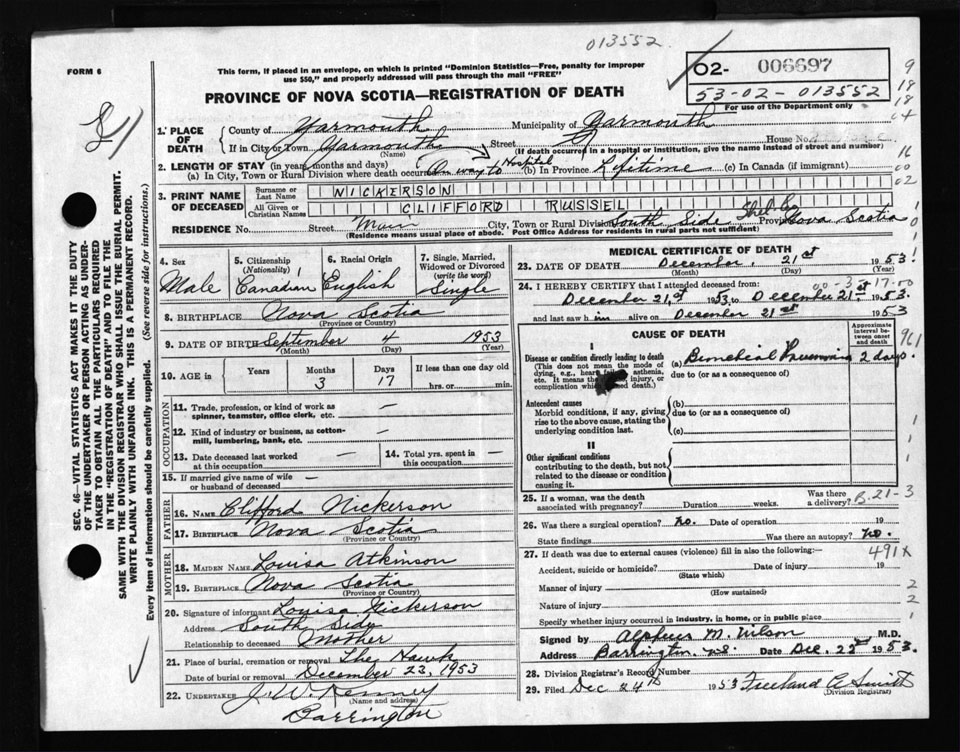 013552
FORM 6
This form, if placed in an envelope, on which is printed "Dominion Statistics—Free, penalty for improper
use $50," and properly addressed will pass through the mail "FREE"
O2- 006697
53-02-013552
For use of the Department only
PROVINCE OF NOVA SCOTIA—REGISTRATION OF DEATH
1. PLACE OF DEATH
County of Yarmouth Municipality of Yarmouth
If in City or Town Yarmouth (Name) Street House No.
(If death occurred in a hospital or institution, give the name instead of street and number)
2. LENGTH OF STAY (in years, months and days)
(a) In City, Town or Rural Division where death occurred On way to Hospital (b) In Province Lifetime (c) In Canada (if immigrant)
3. PRINT NAME OF DECEASED
Surname or Last Name NICKERSON
All Given or Christian Names CLIFFORD RUSSEL
RESIDENCE No. Street City, Town or Rural Division South Side Shel. Co. Province Nova Scotia
(Residence means usual place of abode. Post Office Address for residents in rural parts not sufficient)
4. Sex
Male
5. Citizenship
(Nationality)
Canadian
6. Racial Origin
English
7. Single, Married,
Widowed or Divorced
(write the word)
Single
8. BIRTHPLACE Nova Scotia
(Province or Country)
9. DATE OF BIRTH September 4 1953
(Month) (Day) (Year)
10. AGE in Years Months 3 Days 17 If less than one day old
hrs. or min.
OCCUPATION
11. Trade, profession, or kind of work as
spinner, teamster, office clerk, etc. —
12. Kind of industry or business, as cotton-
mill, lumbering, bank, etc. —
13. Date deceased last worked
at this occupation —
14. Total yrs. spent in
this occupation —
15. If married give name of wife
or husband of deceased —
FATHER
16. NAME Clifford Nickerson
17. BIRTHPLACE Nova Scotia
(Province or Country)
MOTHER
18. MAIDEN NAME Louisa Atkinson
19. BIRTHPLACE Nova Scotia
(Province or Country)
20. Signature of informant Louisa Nickerson
Address South Side
Relationship to deceased Mother
21. Place of burial, cremation or removal The Hawk
Date of burial or removal December 23, 1953
22. UNDERTAKER J. W. Kenney
(Name and address)
Barrington
MEDICAL CERTIFICATE OF DEATH
23. DATE OF DEATH December, 21st 1953
(Month) (Day) (Year)
24. I HEREBY CERTIFY that I attended deceased from:
00-3-17-00
December 21st 1953 to December 21st 1953
and last saw him alive on December 21st 1953
CAUSE OF DEATH
Approximate
interval be-
tween onset
and death
I
Disease or condition directly leading to death
(This does not mean the mode of
dying, e.g., heart asthenia,
etc. It means the injury, or
complication which death.)
(a) Bronchial Pneumonia 2 days.
due to (or as a consequence of)
Antecedent causes
Morbid conditions, if any, giving
rise to the above cause, stating the
underlying condition last.
(b)
due to (or as a consequence of)
(c)
II
Other significant conditions
contributing to the death, but not
related to the disease or condition
causing it.
25. If a woman, was the death
associated with pregnancy? Duration weeks. Was there
a delivery? B.21-3
26. Was there a surgical operation? No. Date of operation 19
State findings Was there an autopsy? No.
27. If death was due to external causes (violence) fill in also the following:— 491X
Accident, suicide or homicide? Date of injury 19
(State which)
Manner of injury
(How sustained)
Nature of injury
Specify whether injury occurred in industry, in home, or in public place
Signed by Alpheus M. Wilson M.D.
Address Barrington, N.S. Date Dec. 22nd 1953.
28. Division Registrar's Record Number
29. Filed Dec 24th 1953 Freeland Smith
(Division Registrar)
SEC. 46—VITAL STATISTICS ACT MAKES IT THE DUTY
OF THE UNDERTAKER OR PERSON ACTING AS UNDER-
TAKER TO OBTAIN ALL THE PARTICULARS REQUIRED
IN THE "REGISTRATION OF DEATH" AND TO FILE THE
SAME WITH THE DIVISION REGISTRAR WHO SHALL ISSUE THE BURIAL PERMIT.
WRITE PLAINLY WITH UNFADING INK. THIS IS A PERMANENT RECORD.
Every item of information should be carefully supplied. (See reverse side for instructions.)
9
18
18
04
16
00
02
961
2
2
1